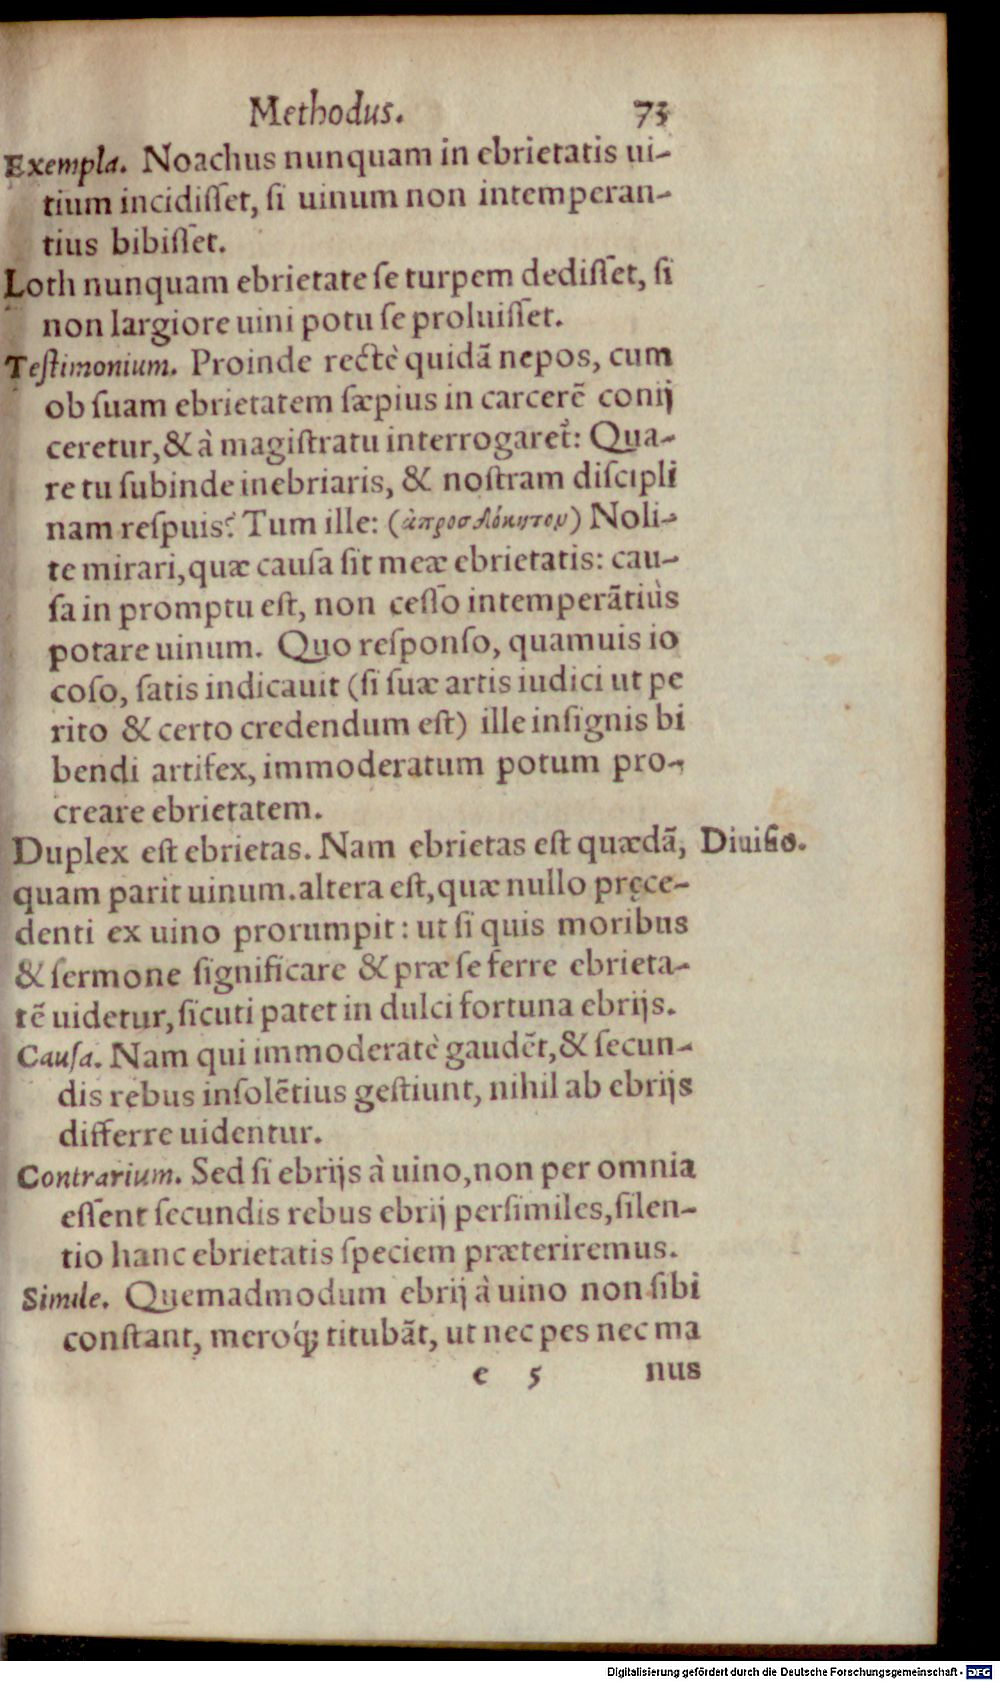 Methodus. 73
Exempla. Noachus nunquam in ebrietatis ui-
tium incidiſſet, ſi uinum non intemperan-
tius bibiſſet.
Loth nunquam ebrietate ſe turpem dediſſet, ſi
non largiore uini potu ſe proluiſſet.
Teſtimonium. Proinde rectè quidā nepos, cum
ob ſuam ebrietatem ſæpius in carcerē conij
ceretur, & à magiſtratu interrogaret̃: Qua-
re tu ſubinde inebriaris, & noſtram diſcipli
nam reſpuis? Tum ille: (ἀπροσδόκητον) Noli-
te mirari, quæ cauſa ſit meæ ebrietatis: cau-
ſa in promptu eſt, non ceſſo intemperātiùs
potare uinum. Quo reſponſo, quamuis io
coſo, ſatis indicauit (ſi ſuæ artis iudici ut pe
rito & certo credendum eſt) ille inſignis bi
bendi artifex, immoderatum potum pro-
creare ebrietatem.
Duplex eſt ebrietas. Nam ebrietas eſt quædā, Diuiſio.
quam parit uinum. altera eſt, quæ nullo pręce-
denti ex uino prorumpit: ut ſi quis moribus
& ſermone ſignificare & præ ſe ferre ebrieta-
tē uidetur, ſicuti patet in dulci fortuna ebrijs.
Cauſa. Nam qui immoderatè gaudēt, & ſecun-
dis rebus inſolētius geſtiunt, nihil ab ebrijs
differre uidentur.
Contrarium. Sed ſi ebrijs à uino, non per omnia
eſſent ſecundis rebus ebrij perſimiles, ſilen-
tio hanc ebrietatis ſpeciem præteriremus.
Simile. Quemadmodum ebrij à uino non ſibi
conſtant, meroq́; titubāt, ut nec pes nec ma
e 5 nus
Digitalisierung gefördert durch die Deutsche Forschungsgemeinschaft - DFG